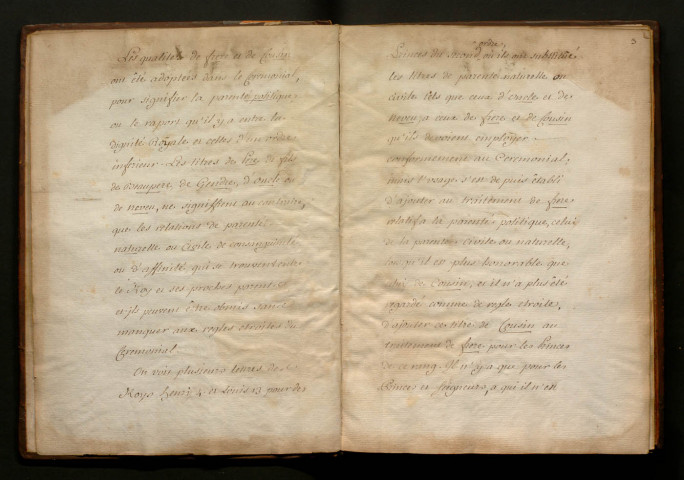 Les qualités de frere et de Cousin
ont été adoptées dans le Ceremonial,
pour signifier la parenté politique
ou le raport qu'il y a entre la
dignité Royale et celles d'un ordre
inferieur. Les titres de Pere de fils
de Beaupere, de Gendre, d'oncle ou
de neveu, ne signiffient au contraire,
que les relations de parenté
naturelle ou Civile de consanguinité
ou d'affinité qui se trouvent entre
le Roy et ses proches parents
et ils peuvent être obmis sans
manquer aux regles etroites du
Ceremonial.
On voit plusieurs lettres des
Roys henry 4 et Louis 13 pour des
3
ordre,
Princes du second où ils ont substitué
les titres de parenté naturelle ou
civile tels que ceux d'oncle et de
neveu, a ceux de frere et de Cousin
qu'ils devoient employer
conformement au Ceremonial,
mais l'usage s'en depuis établi
d'ajouter au traitement de frere
relatif a la parenté politique, celui
de la parenté Civile ou naturelle,
qu'il est plus honorable que
celui de Cousin, et il n'a plus été
regardé comme de regle etroite,
d'ajouter ce titre de Cousin au
traitement de frere pour les Princes
de ce rang. Il n'y a que pour les
Princes et Seigneurs, a qui il n'en